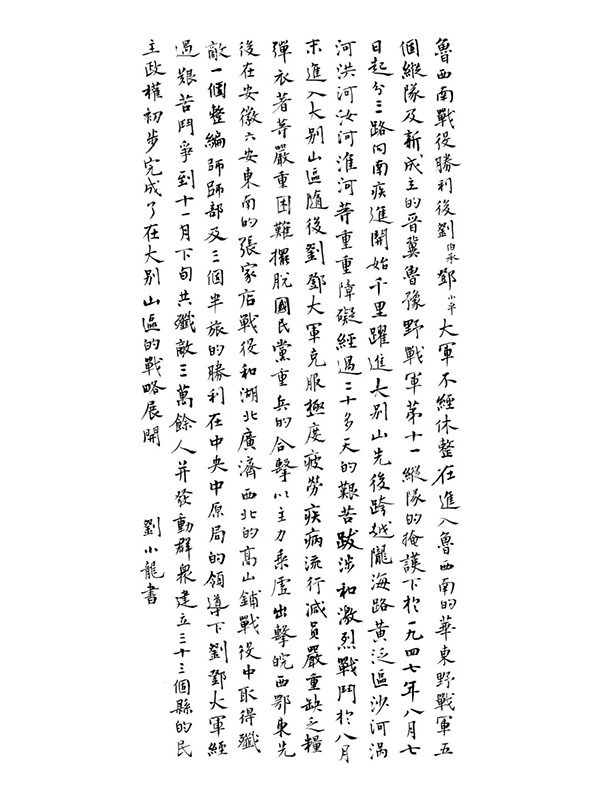 魯西南戰役勝利後劉伯承鄧小平大軍不經休整在進入魯西南的華東野戰軍五
個縱隊及新成立的晋冀魯豫野戰軍第十一縱隊的掩護下於一九四七年八月七
日起分三路向南疾進開始千里躍進大别山先後跨越隴海路黄泛區沙河渦
河洪河汝河淮河等重重障礙經過二十多天的艱苦跋涉和激烈戰鬥於八月
末進入大别山區随後劉鄧大軍克服極度疲勞疾病流行减員嚴重缺乏糧
彈衣著等嚴重困難擺脱國民黨重兵的合擊以主力乘虚出擊皖西鄂東先
後在安徽六安東南的張家店戰役和湖北廣濟西北的高山鋪戰役中取得殲
敵一個整編師師部及三個半旅的勝利在中央中原局的領導下劉鄧大軍經
過艱苦鬥爭到十一月下旬共殲敵三萬餘人并發動群衆建立三十三個縣的民
主政權初步完成了在大别山區的戰略展開
劉小龍書